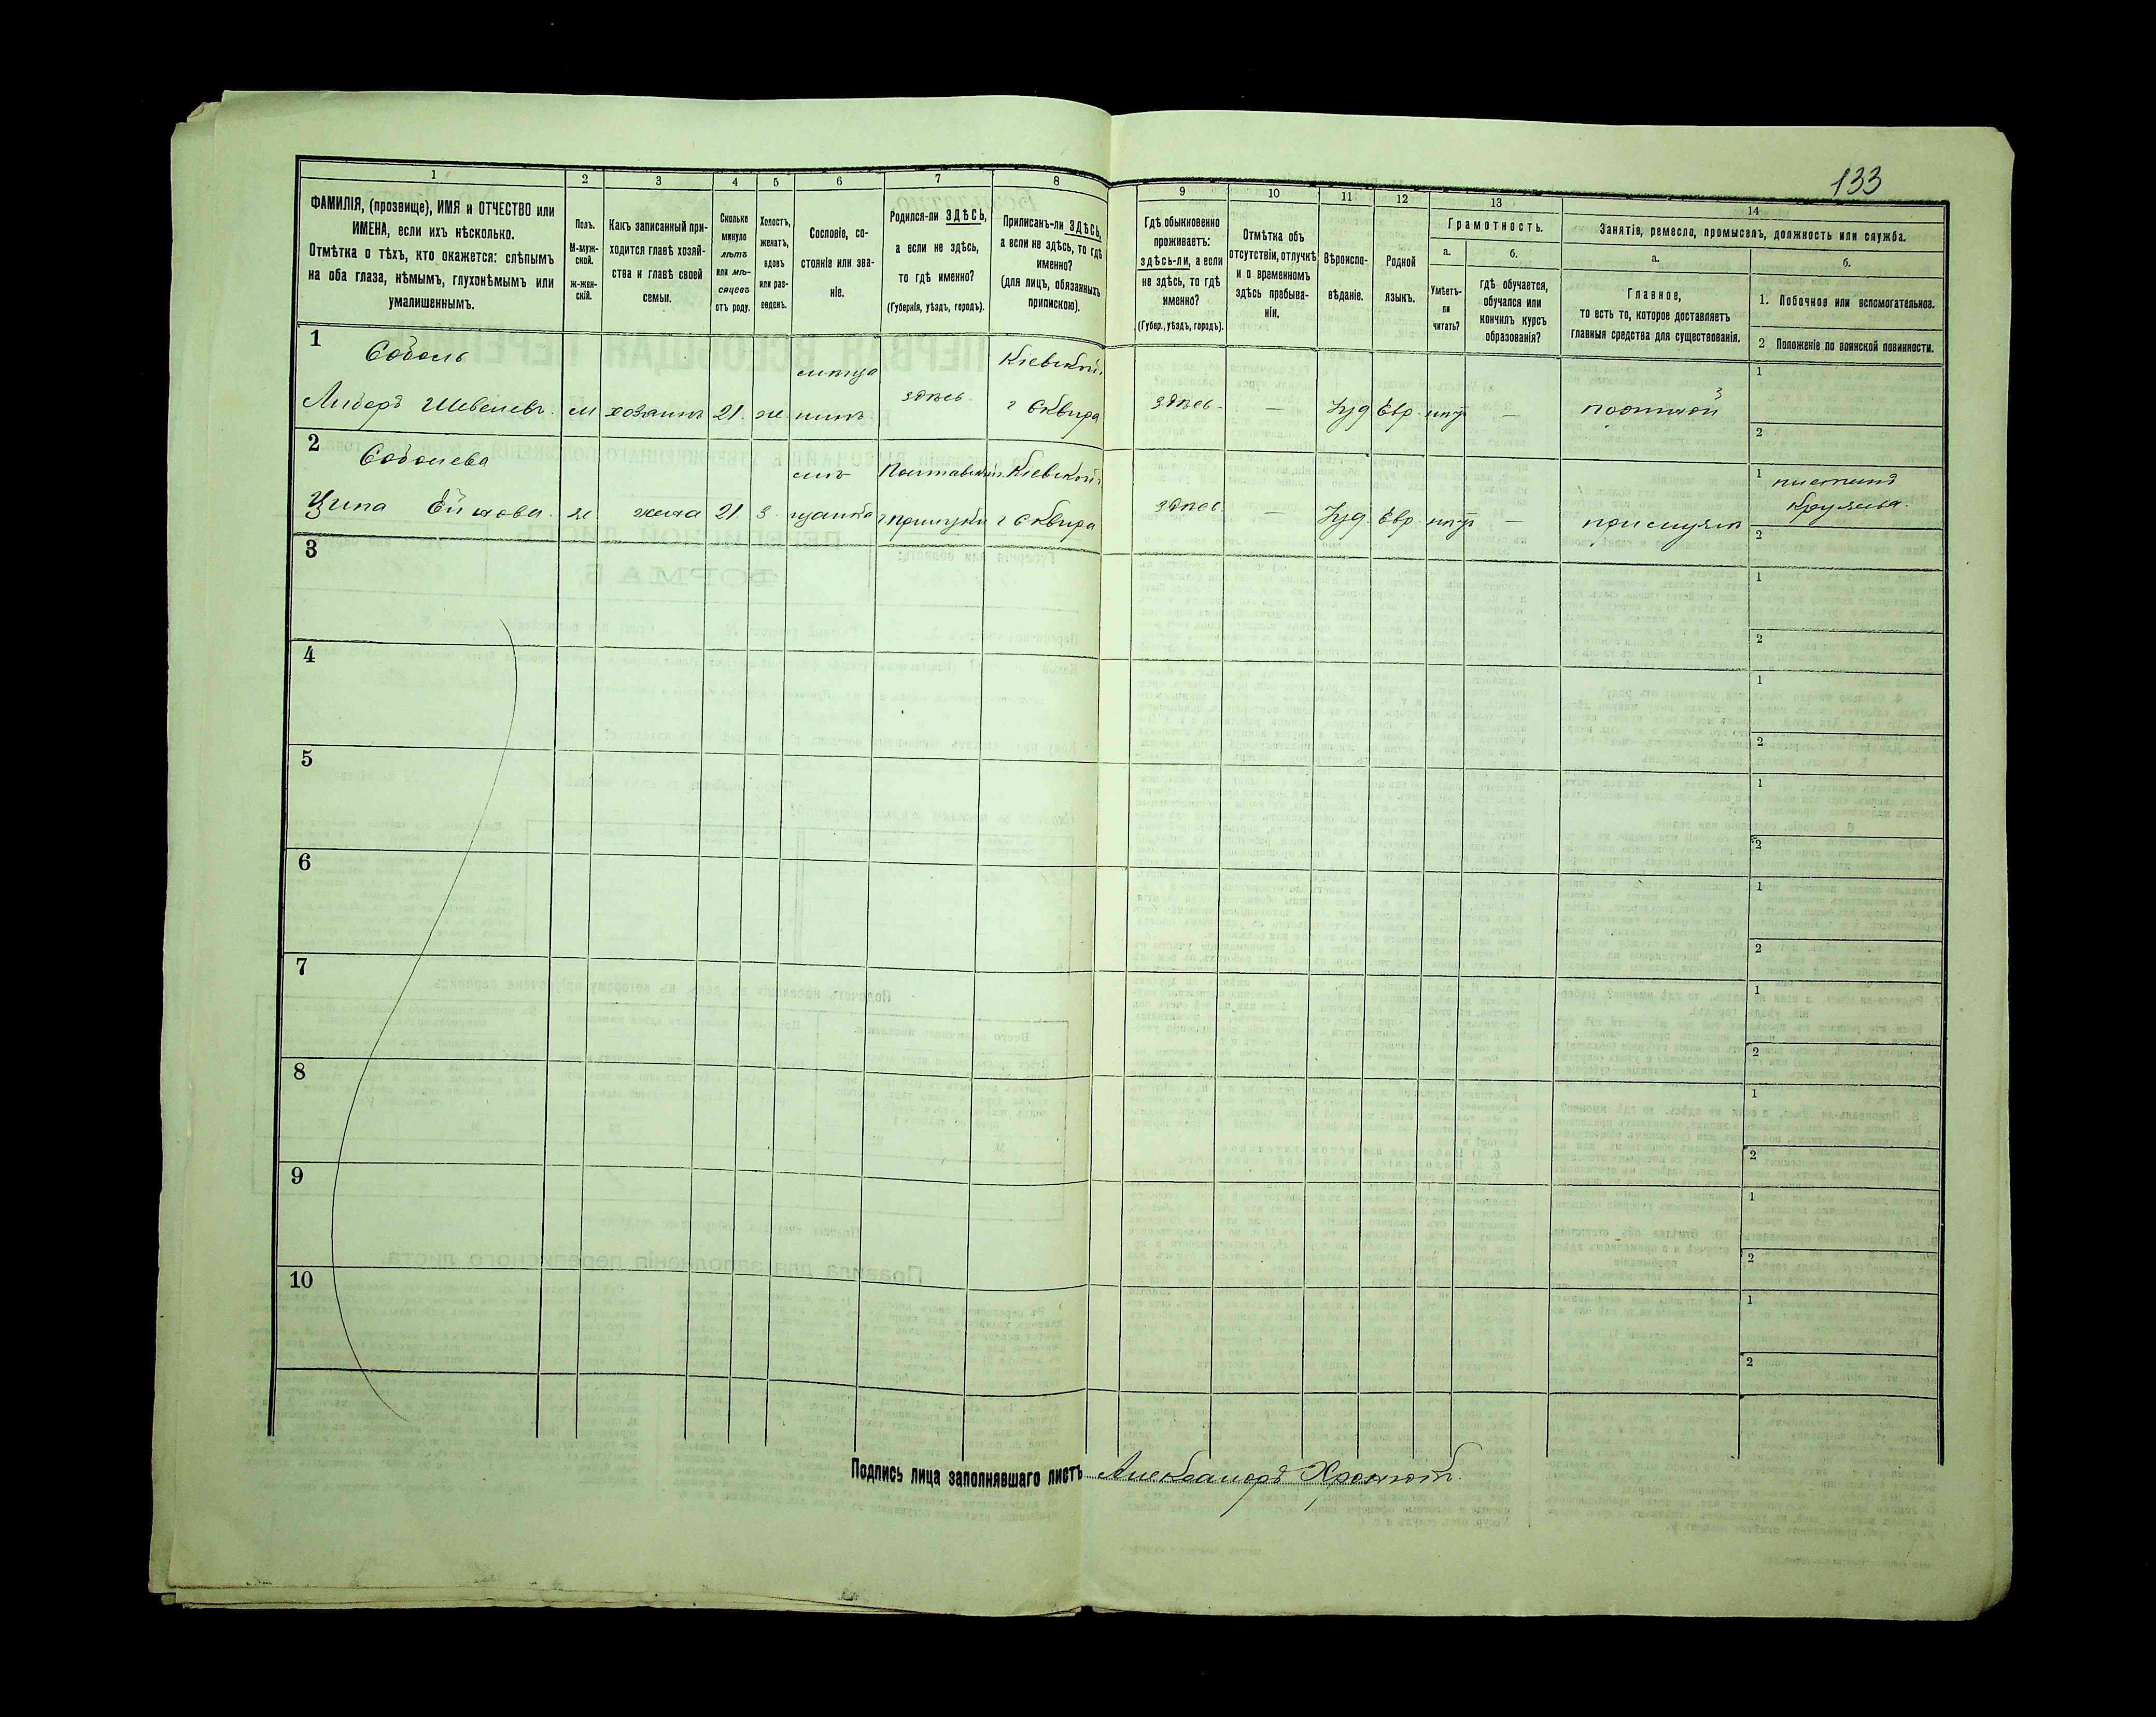 133
1
2
3
4
5
6
7
8
9
10
11
12
13
14
ФАМИЛІЯ, (прозвище), ИМЯ и ОТЧЕСТВО или
ИМЕНА, если ихъ нѣсколько.
Отмѣтка о тѣхъ, кто окажется: слѣпымъ
на оба глаза, нѣмымъ, глухонѣмымъ или
умалишеннымъ.
Полъ.
М-муж-
ской.
ж-жен-
скій.
Какъ записанный при-
ходится главѣ хозяй-
ства и главѣ своей
семьи.
Сколько
минуло
лѣтъ
или мѣ-
сяцевъ
отъ роду.
Холостъ,
женатъ,
вдовъ
или раз-
веденъ.
Сословіе, со-
стояніе или зва-
ніе.
Родился-ли ЗДѢСЬ,
а если не здѣсь,
то гдѣ именно?
(Губернія, уѣздъ, городъ).
Приписанъ-ли ЗДѢСЬ,
а если не здѣсь, то гдѣ
именно?
(для лицъ, обязанныхъ
припискою).
Гдѣ обыкновенно
проживаетъ:
здѣсь-ли, а если
не здѣсь, то гдѣ
именно?
(Губер., уѣздъ, городъ).
Отмѣтка объ
отсутствіи, отлучкѣ
и о временномъ
здѣсь пребыва-
ніи.
Вѣроиспо-
вѣданіе.
Родной
языкъ.
Грамотность.
а.
б.
Умѣетъ-
ли
читать?
гдѣ обучается,
обучался или
кончилъ курсъ
образованія?
Занятіе, ремесло, промыселъ, должность или служба.
а.
б.
Главное,
то есть то, которое доставляетъ
главныя средства для существованія.
1. Побочное или вспомогательное.
2 Положеніе по воинской повинности.
1
Соболь
Либеръ Шевелевъ.
м
хозяинъ
21.
ж.
мѣща
нинъ
здѣсь
Кіевской.
г Сквира
здѣсь.
—
Іуд
Евр.
нѣтъ
—
портной
1
2
2
Соболева
Ципа
ж.
жена
21.
З.
мѣ
щанка
Полтавской
г Прилуки
Кіевской.
г Сквира
здѣсь
—
Іуд.
Евр.
нѣтъ
—
при мужѣ
1 плетьнд
кружева.
2
3
1
2
4
1
2
5
1
2
6
1
2
7
1
2
8
1
2
9
1
2
10
1
2
Подпись лица заполнявшаго листъ Александръ